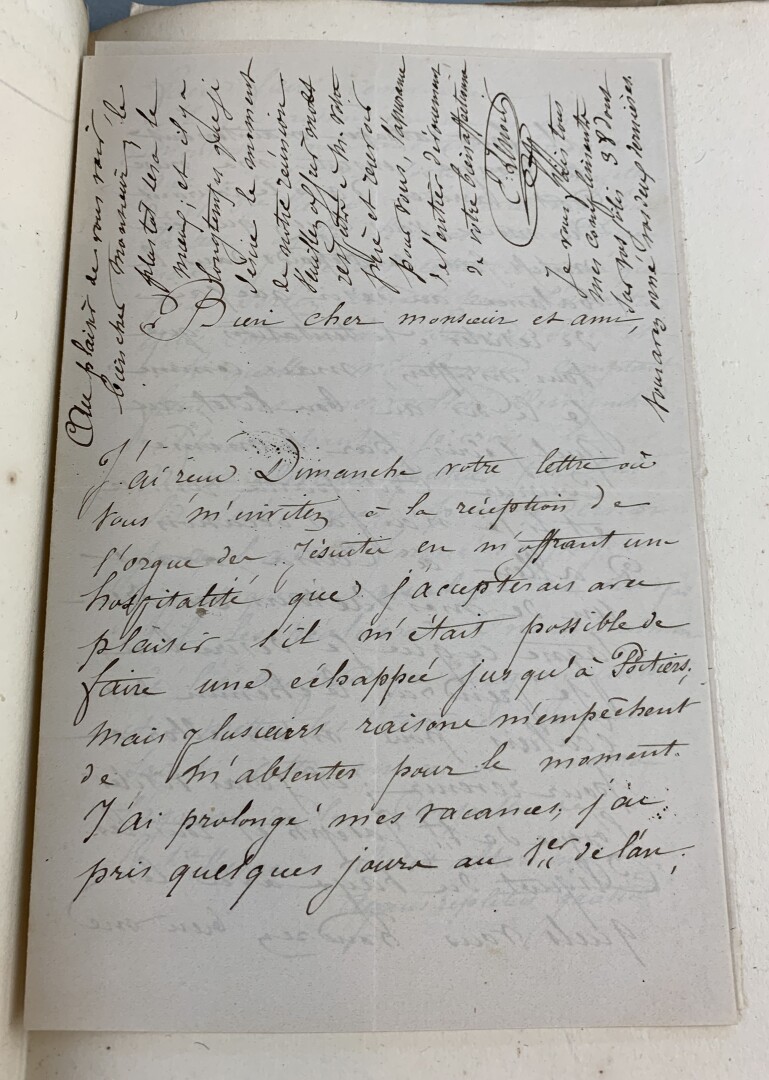 Bien cher monsieur et ami,
J'ai reçu Dimanche votre lettre où
vous m'invitez à la réception de
l'orgue des Jésuites en m'offrant une
hospitalité que j'accepterais avec
plaisir s'il m'était possible de
faire une échappée jusqu'à Poitiers,
mais plusieurs raisons m'empêchent
de m'absenter pour le moment.
J'ai prolongé mes vacances, j'ai
pris quelques jours au 1er de l'an,
Au plaisir de vous voir
bien cher Monsieur, le
plus tôt sera le
mieux, et il y a
longtemps que je
désire le moment
de notre réunion
Veuillez offrir mes
respects à M. votre
père et recevoir
pour vous, l'assurance
de l'entier dévouement
de votre bien affectionné
Je vous fais tous
mes compliments
sur vos jolis dont
vous avez orné vos deux dernières